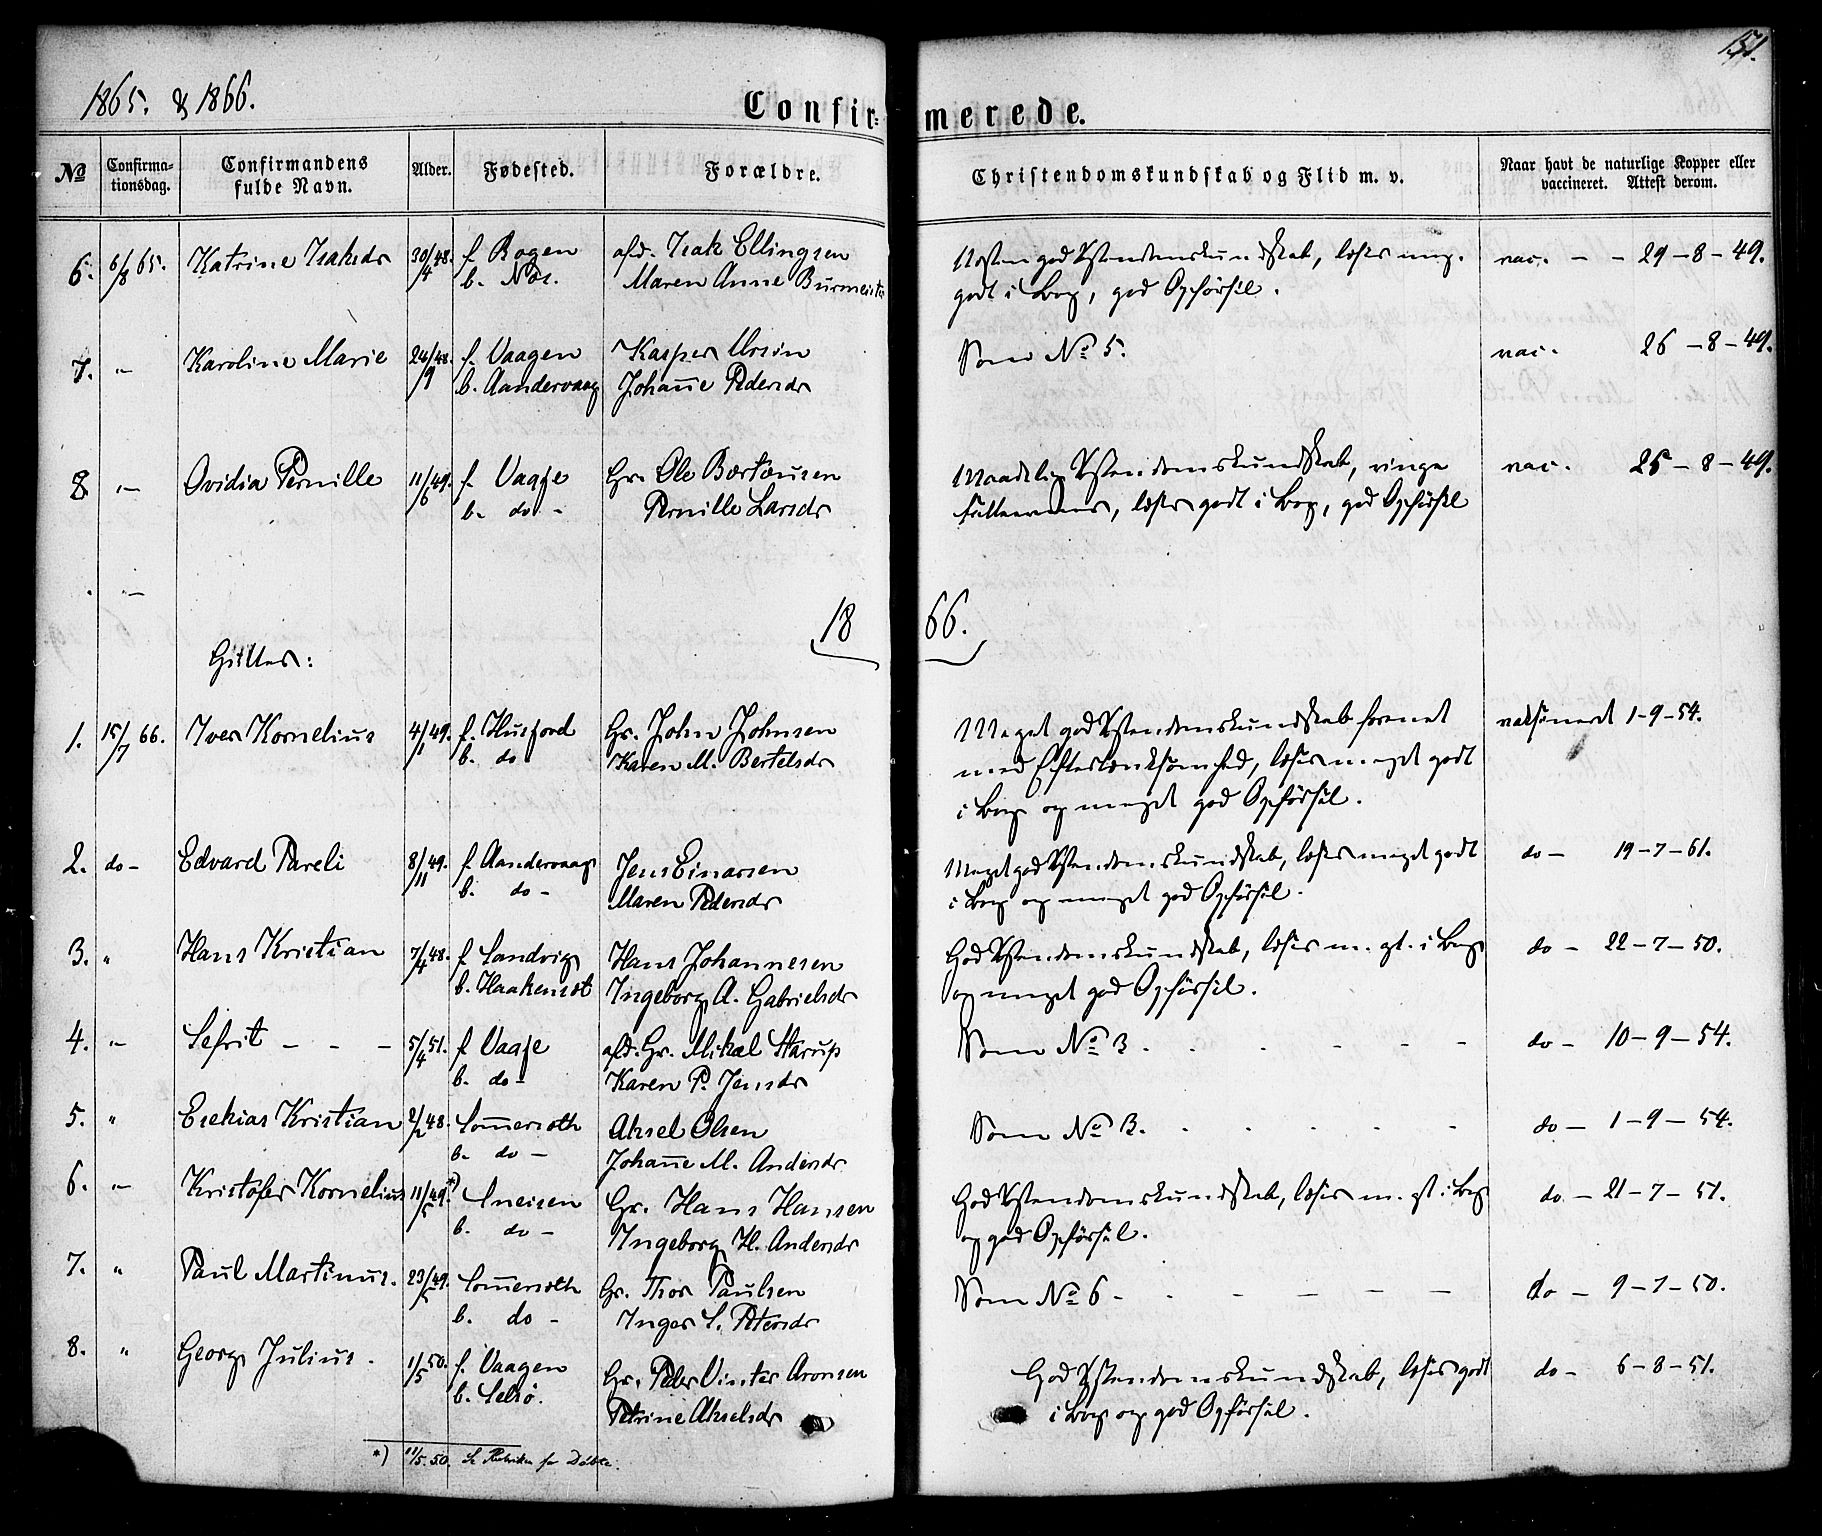 1865. & 1866.
Confir-
merede.
151.
No
Confirma-
tionsdag.
Confirmandens
fulde Navn.
Alder.
Fødested.
Forældre.
Christendomskundskab og Flid m. v.
Naar havt de naturlige Kopper eller
vaccineret. Attest derom.
6. 6/8 65. Katrine Isaksdr 30/4 48. f. Bogen afd. Isak Ellingsen
b. Næs. Maren Anne Burmeister
Næsten god Xstendomskundskab, læser meg. vac. - - 29-8-49.
godt i Bog, god Opførsel.
7. -"- Karoline Marie 24/9 48. f. Vaagen Kasper Ursin
b. Aandervaag Johanne Pedersdr
Som No 5. vac. 26-8-49.
8 -"- Ovidia Pernille 11/6 49. f. Vagje Gr. Ole Bærtæusen
b. do - Pernille Larsdr
Maadelig Xstendomskundskab, ringe vac. 25-8-49.
Fatteevne, læser godt i Bog, god Opførsel
-"-
1866.
Gutter:
1. 15/7 66. Iver Kornelius 4/1 49. f. Husfjord Gr. John Johnsen
b. do Karen M. Bertelsdr
Meget god Xstendomskundskab forenet vaksineret 1-9-54.
med Eftertænksomhed, læser meget godt
i Bog og meget god Opførsel.
2. do- Edvard Pareli 8/11 49. f. Aandervaag Jens Einarsen
b. do - Maren Pedersdr
Meget god Xstendomskundskab, læser meget godt do - 19-7-61.
i Bog og meget god Opførsel.
3. " Hans Kristian 7/4 48. f. Sandvig Hans Johannesen
b. Haakensøt Ingeborg A. Gabrielsdr
God Xstendomskundskab, læser m. gt. i Bog do - 22-7-50.
og meget god Opførsel.
4. -"- Sefrit - - - 5/4 51. f. Vagje afd. Gr. Mikal Harup
b. do - Karen P. Jensdr
Som No 3. . . . - - - do - 10-9-54.
5. " Esekias Kristian 2/2 48. Sommersæth Aksel Olsen
b. do - Johanne M. Andersdr
Som No 3. . . . . . - do - 1-9-54.
6. -"- Kristofer Kornelius 11/5 49. *) Sneisen Gr. Hans Hansen
b. do - Ingeborg H. Andersdr
God Xstendomskundskab, læser m. gt i Bog do - 21-7-51.
og god Opførsel.
7. " Paul Martinus. 23/5 49. Sommersæth Gr. Thor Paulsen
b. do - Inger S. Petersdr
Som No 6 - - - - - - do - 9-7-50.
8. " Georg Julius. 1/5 50. f. Vaagen Gr. Peter Vinter Aronsen
b. Selsø. Petrine Akselsdr
God Xstendomskundskab, læser godt do - 6-8-51.
i Bog og god Opførsel.
*) 11/5. 50. Se Rubriken for Døbte.